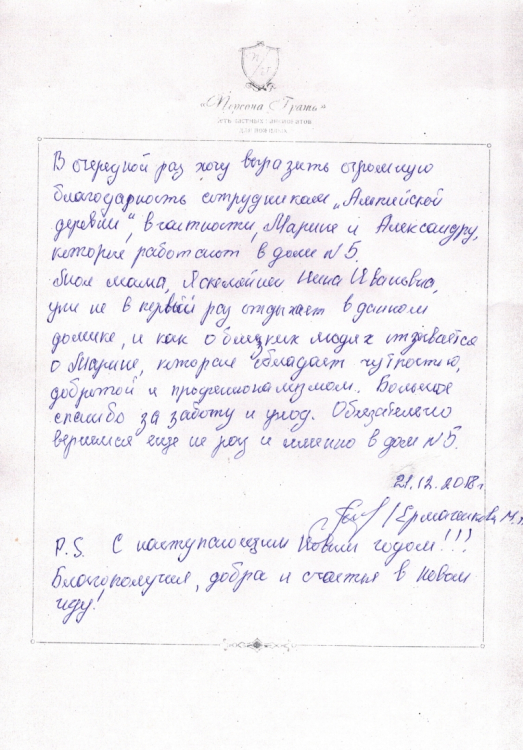 «Персона Грата»
сеть частных пансионатов
для пожилых
В очередной раз хочу выразить огромную
благодарность сотрудникам „Алтайской
деревни", в частности, Марине и Александру,
которые работают в доме N 5.
Моя мама, Нина Ивановна,
уже не в первый раз отдыхает в данном
домике, и как о близких людях отзывается
о Марине, которая обладает чуткостью,
добротой и профессионализмом. Большое
спасибо за заботу и уход. Обязательно
вернемся еще не раз и именно в дом N 5.
21.12.2018 г
P.S. С наступающим Новым годом!!!
Благополучия, добра и счастья в Новом
году!